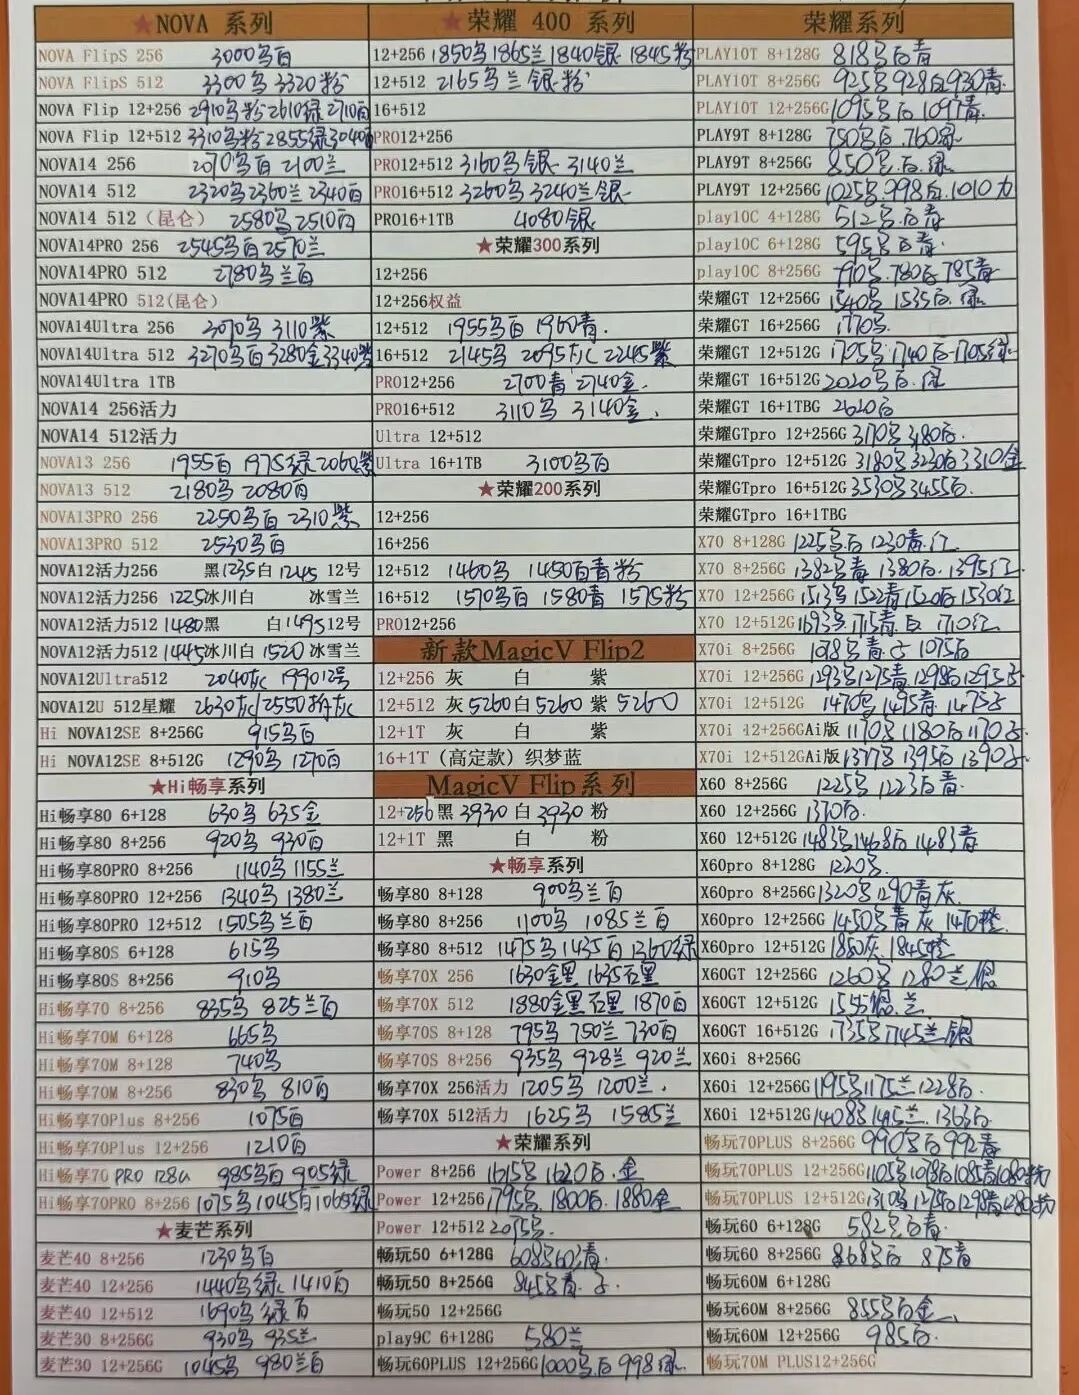 ★NOVA 系列
NOVA FlipS 256 3000乌白
NOVA FlipS 512 3300乌 3320粉
NOVA Flip 12+256 2910乌粉2610绿2710白
NOVA Flip 12+512 3310乌粉2855绿3040白
NOVA14 256 2070乌白 2100兰
NOVA14 512 2320乌2360兰2340白
NOVA14 512（昆仑） 2580乌2510白
NOVA14PRO 256 2545乌白2570兰
NOVA14PRO 512 2780乌兰白
NOVA14PRO 512(昆仑)
NOVA14Ultra 256 3070乌 3110紫
NOVA14Ultra 512 3270乌白3280金3340紫
NOVA14Ultra 1TB
NOVA14 256活力
NOVA14 512活力
NOVA13 256 1955白 1975绿2060紫
NOVA13 512 2180乌 2080白
NOVA13PRO 256 2250乌白 2310紫
NOVA13PRO 512 2530乌白
NOVA12活力256 黑1235白1245 12号
NOVA12活力256 1225冰川白 冰雪兰
NOVA12活力512 1480黑 白1495 12号
NOVA12活力512 1445冰川白 1520 冰雪兰
NOVA12Ultra512 2040灰 1990 12号
NOVA12U 512星耀 2630灰 2550
Hi NOVA12SE 8+256G 915乌白
Hi NOVA12SE 8+512G 1290乌 1270白
★Hi畅享系列
Hi畅享80 6+128 630乌 635金
Hi畅享80 8+256 920乌 930白
Hi畅享80PRO 8+256 1140乌 1155兰
Hi畅享80PRO 12+256 1340乌 1380兰
Hi畅享80PRO 12+512 1505乌兰白
Hi畅享80S 6+128 615乌
Hi畅享80S 8+256 910乌
Hi畅享70 8+256 835乌 825兰白
Hi畅享70M 6+128 665乌
Hi畅享70M 8+128 740乌
Hi畅享70M 8+256 830乌 810白
Hi畅享70Plus 8+256 1075白
Hi畅享70Plus 12+256 1210白
Hi畅享70 PRO 128G 985乌白 905绿
Hi畅享70PRO 8+256 1075乌1045白1065绿
★麦芒系列
麦芒40 8+256 1230乌白
麦芒40 12+256 1440乌绿 1410白
麦芒40 12+512 1690乌绿白
麦芒30 8+256G 930乌 935兰
麦芒30 12+256G 1045乌 980兰白
★荣耀 400 系列
12+256 1850乌1865兰1840银 1845粉
12+512 2165乌兰银粉
16+512
PRO12+256
PRO12+512 3160乌银 3140兰
PRO16+512 3260乌 3240兰银
PRO16+1TB 4080银
★荣耀300系列
12+256
12+256权益
12+512 1955乌白 1960青.
16+512 2145乌 2095灰 2245紫
PRO12+256 2700青 2740金.
PRO16+512 3110乌 3140金.
Ultra 12+512
Ultra 16+1TB 3100乌白
★荣耀200系列
12+256
16+256
12+512 1460乌 1450白青粉
16+512 1570乌白 1580青 1575粉
PRO12+256
新款MagicV Flip2
12+256 灰 白 紫
12+512 灰5260白5260 紫5260
12+1T 灰 白 紫
16+1T（高定款）织梦蓝
MagicV Flip系列
12+256黑3930白3930 粉
12+1T 黑 白 粉
★畅享系列
畅享80 8+128 900乌兰白
畅享80 8+256 1100乌 1085兰白
畅享80 8+512 1475乌1435白1360绿
畅享70X 256 1630金黑 1635石黑
畅享70X 512 1880金黑石黑 1870白
畅享70S 8+128 795乌 750兰 730白
畅享70S 8+256 935乌 928兰 920兰
畅享70X 256活力 1205乌 1200兰.
畅享70X 512活力 1625乌 1585兰
★荣耀系列
Power 8+256 1615乌1620白.金
Power 12+256 1795乌.1800白.1880金
Power 12+512 2095乌.
畅玩50 6+128G 608乌603青.
畅玩50 8+256G 845乌青.
畅玩50 12+256G
play9C 6+128G 580兰
畅玩60PLUS 12+256G 1000乌白 998绿.
荣耀系列
PLAY10T 8+128G 818乌白青
PLAY10T 8+256G 925乌928白930青.
PLAY10T 12+256G 1095乌白 1097青.
PLAY9T 8+128G 750乌白.760绿.
PLAY9T 8+256G 850乌.白.绿
PLAY9T 12+256G 1025乌.998白.1010
play10C 4+128G 512乌.白青
play10C 6+128G 595乌白青.
play10C 8+256G 790乌.780白.785青
荣耀GT 12+256G 1540乌 1535白.绿.
荣耀GT 16+256G 1770乌.
荣耀GT 12+512G 1705乌1740白1705绿.
荣耀GT 16+512G 2020乌白.绿
荣耀GT 16+1TBG 2620白
荣耀GTpro 12+256G 3170乌3180白.
荣耀GTpro 12+512G 3180乌3230白3310金
荣耀GTpro 16+512G 3530乌3455白.
荣耀GTpro 16+1TBG
X70 8+128G 1225乌白 1230青.红
X70 8+256G 1382乌青 1380白.1395红.
X70 12+256G 1513乌1522青1520白1530红
X70 12+512G 1693乌1715青.白 1710红.
X70i 8+256G 1078乌青. 1075白
X70i 12+256G 1293乌1275青1298白1295
X70i 12+512G 1470乌1495青 1475
X70i 12+256GAi版 1170乌1180白1170
X70i 12+512GAi版 1377乌1395白1390
X60 8+256G 1225乌 1223白青.
X60 12+256G 1370白.
X60 12+512G 1483乌1468白1483青
X60pro 8+128G 1220乌.
X60pro 8+256G 1320乌1290青灰.
X60pro 12+256G 1450乌青灰.1470橙.
X60pro 12+512G 1850灰1845橙
X60GT 12+256G 1260乌 1280兰银
X60GT 12+512G 1555银.兰
X60GT 16+512G 1735乌1745兰银
X60i 8+256G
X60i 12+256G 1195乌1175兰1228白.
X60i 12+512G 1408乌1495兰.1363白
畅玩70PLUS 8+256G 990乌白992青
畅玩70PLUS 12+256G 1105乌1078白1085青1080粉
畅玩70PLUS 12+512G 1310乌1275白1298青1280粉
畅玩60 6+128G 582乌白青.
畅玩60 8+256G 868乌白 875青
畅玩60M 6+128G
畅玩60M 8+256G 855乌白金.
畅玩60M 12+256G 985白.
畅玩70M PLUS12+256G